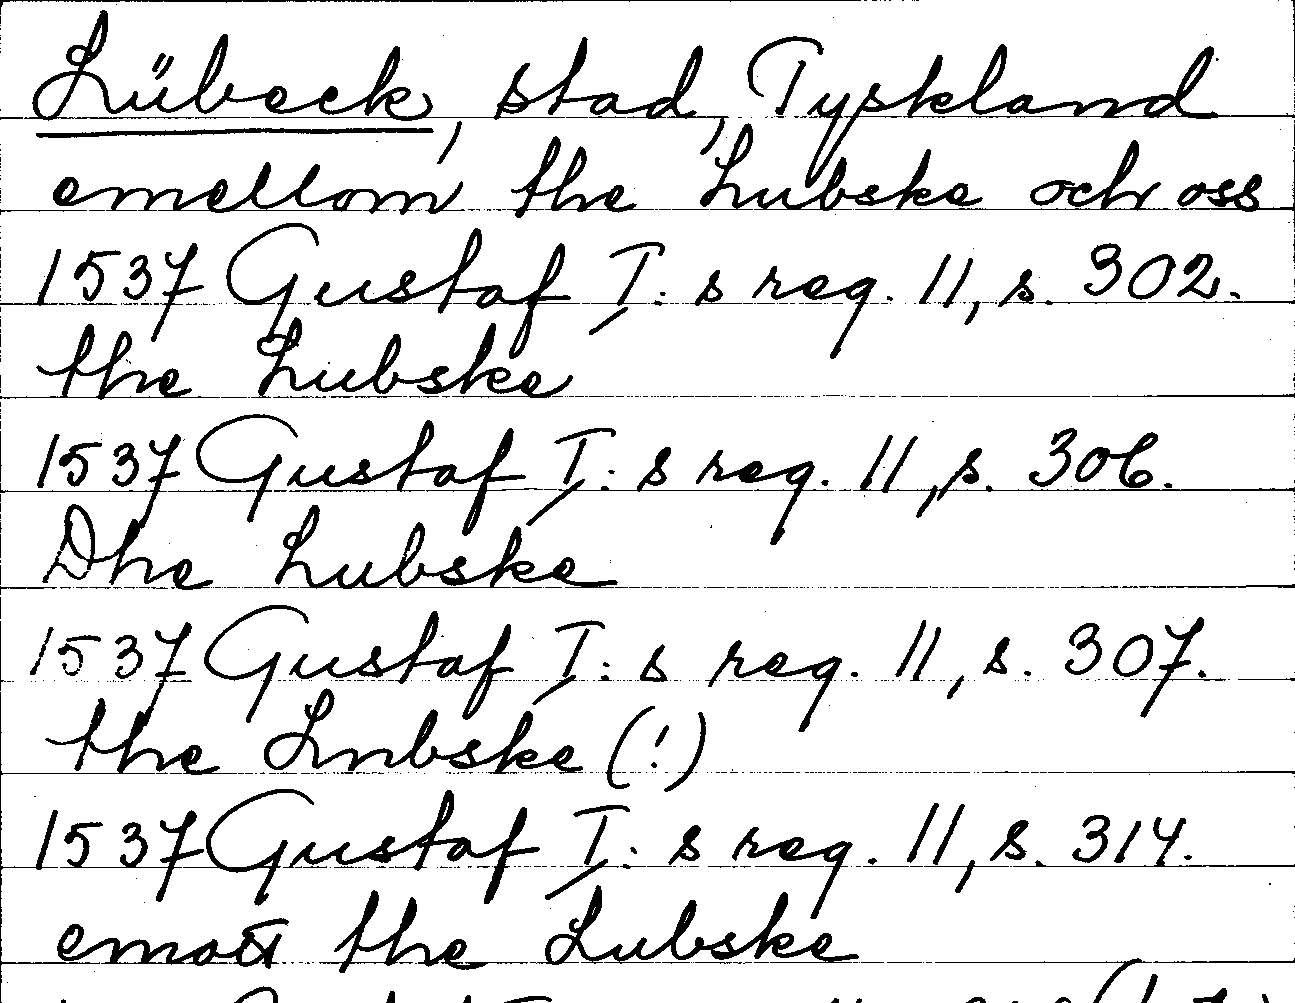 Lübeck, stad, Tyskland
emellom the Lubske och oss
1537 Gustaf I:s reg. 11, s. 302.
the Lubske
1537 Gustaf I:s reg. 11, s. 306.
Dhe Lubske
1537 Gustaf I:s reg. 11, s. 307.
the Lnbske (!)
1537 Gustaf I:s reg. 11, s. 314.
emott the Lubske